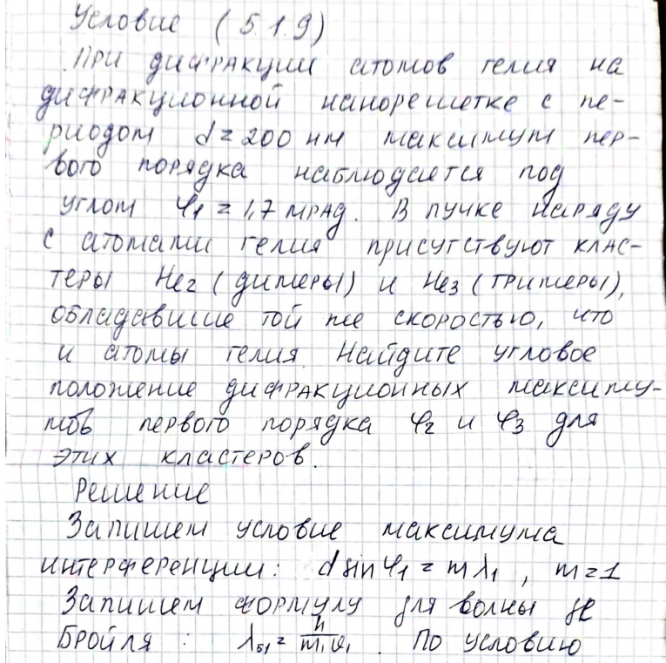 Условие (5.1.9)
При дифракции атомов гелия на
дифракционной нанорешетке с пе-
риодом d = 200 нм максимум пер-
вого порядка наблюдается под
углом φ₁ = 1,7 мрад. В пучке наряду
с атомами гелия присутствуют клас-
теры He₂ (димеры) и He₃ (тримеры),
обладавшие той же скоростью, что
и атомы гелия. Найдите угловое
положение дифракционных максиму-
мов первого порядка φ₂ и φ₃ для
этих кластеров.
Решение
Запишем условие максимума
интерференции: d sin φ₁ = mλ₁, m=1
Запишем формулу для волны де
Бройля: λ_Б1 = h/(m₁υ₁). По условию